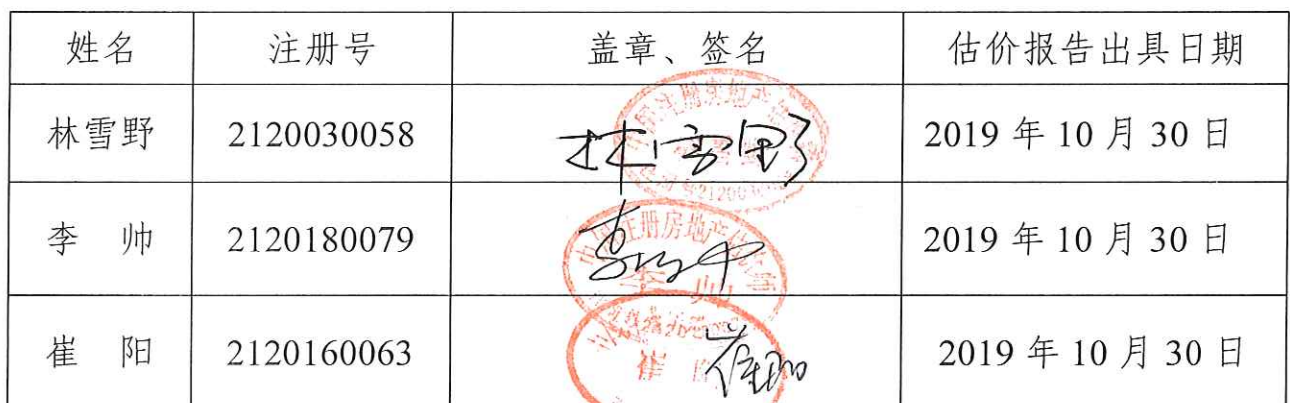 姓名 注册号 盖章、签名 估价报告出具日期
林雪野 2120030058 林雪野 2019 年 10 月 30 日
李 帅 2120180079 中国注册房地产估价师 李帅 李 帅 2019 年 10 月 30 日
崔 阳 2120160063 崔 崔阳 2019 年 10 月 30 日